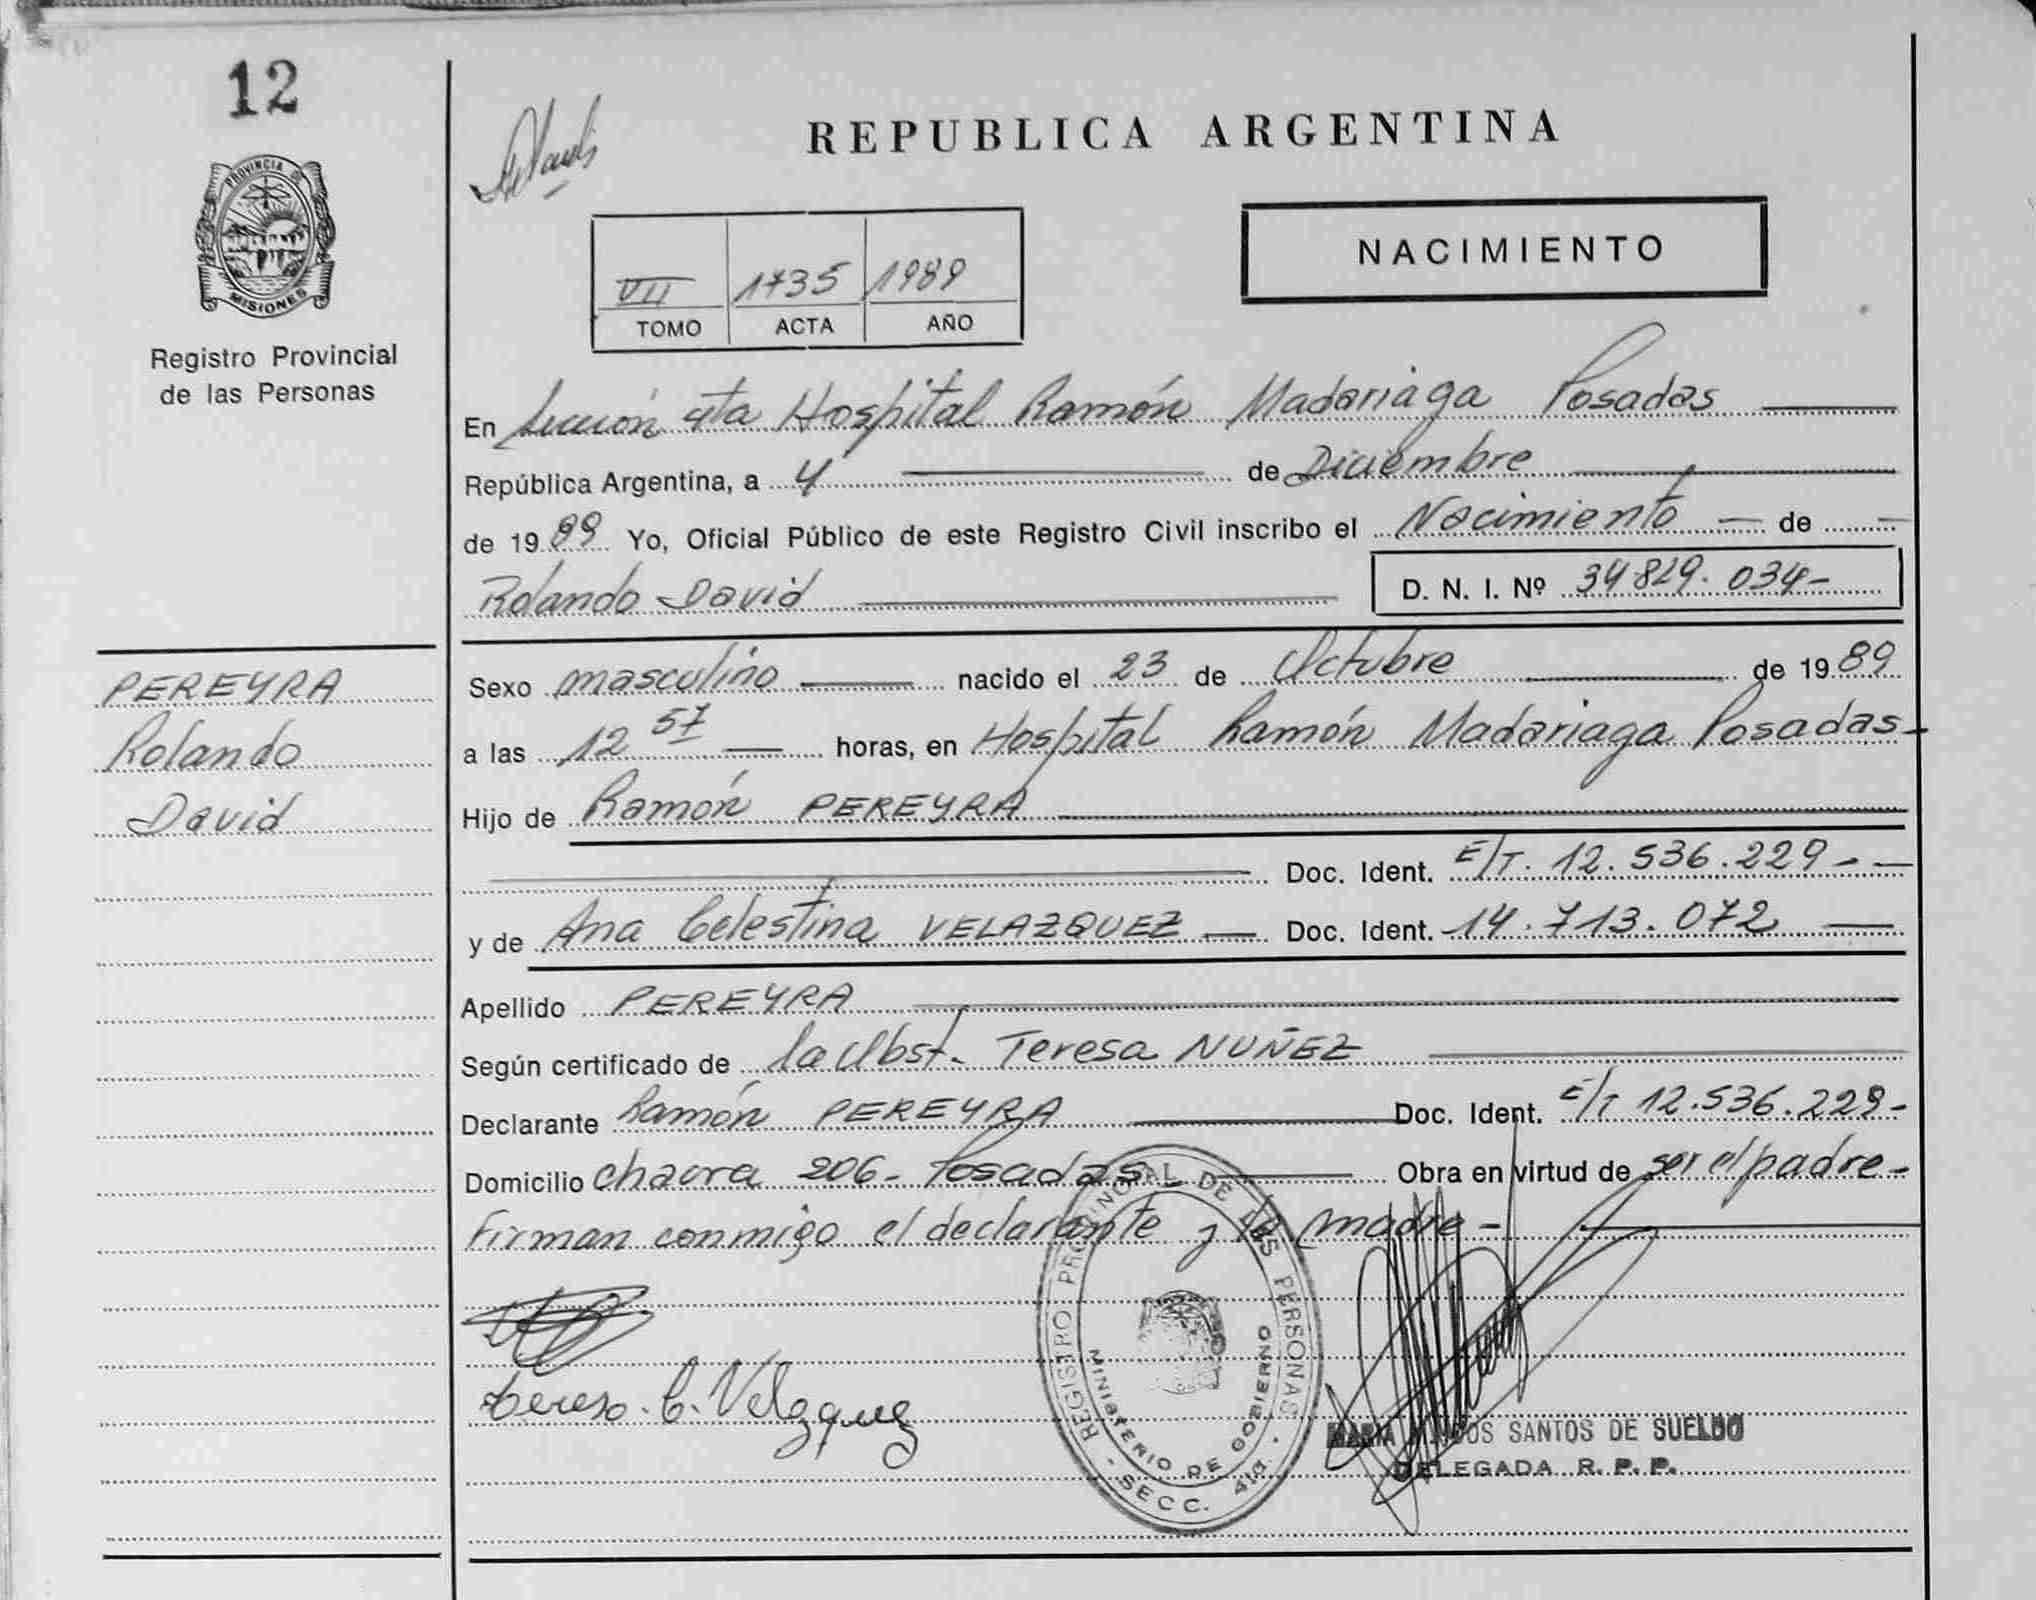 12
PROVINCIA DE
MISIONES
Registro Provincial
de las Personas
PEREYRA
Rolando
David
REPUBLICA ARGENTINA
NACIMIENTO
VII 1735 1989
TOMO ACTA AÑO
En Sección 4ta Hospital Ramón Madariaga Posadas
República Argentina, a 4 de Diciembre
de 1989 Yo, Oficial Público de este Registro Civil inscribo el Nacimiento de
Rolando David D. N. I. Nº 34.829.034-
Sexo masculino nacido el 23 de Octubre de 1989
a las 12 57 horas, en Hospital Ramón Madariaga Posadas-
Hijo de Ramón PEREYRA
Doc. Ident. E/T. 12.536.229-
y de Ana Celestina VELAZQUEZ Doc. Ident. 14.713.072
Apellido PEREYRA
Según certificado de la Obst. Teresa NUÑEZ
Declarante Ramón PEREYRA Doc. Ident. E/T 12.536.229-
Domicilio Chacra 206- Posadas Obra en virtud de ser el padre-
Firman conmigo el declarante y la madre-
C. Velazquez
REGISTRO PROVINCIAL DE LAS PERSONAS
MINISTERIO DE GOBIERNO
SECC. 4ta
MARIA DOS SANTOS DE SUELDO
DELEGADA R. P. P.